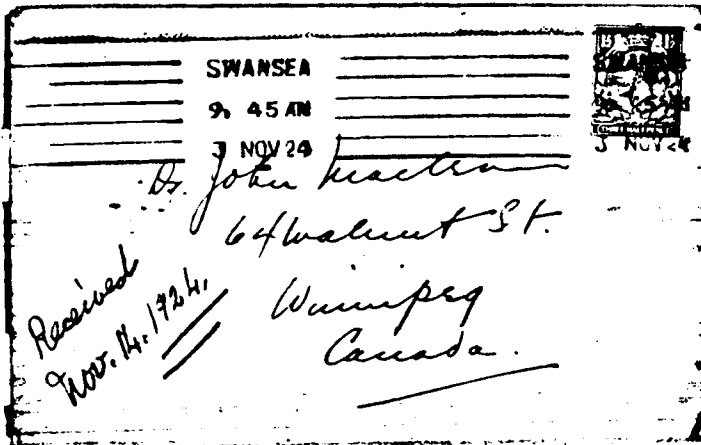 SWANSEA
9. 45 AM
3 NOV 24
3 NOV 24
Dr. John
64 Walnut St.
Winnipeg
Canada.
Received
Nov. 14, 1924,